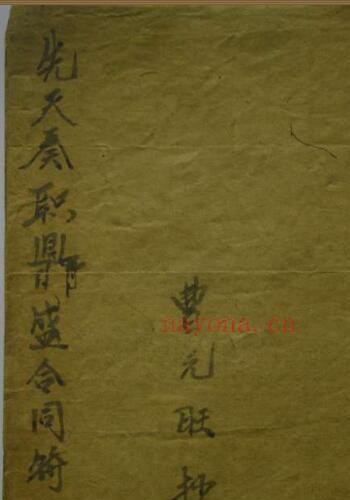 先天奏职鼎盛合同符
曹元旺抄
nayona.cn